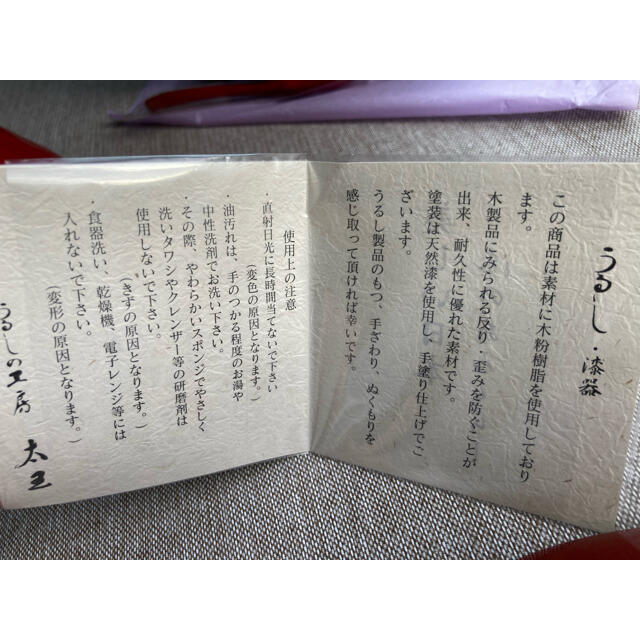 うるし・漆器
この商品は素材に木粉樹脂を使用しており
ます。
木製品にみられる反り・歪みを防ぐことが
出来、耐久性に優れた素材です。
塗装は天然漆を使用し、手塗り仕上げでご
ざいます。
うるし製品のもつ、手ざわり、ぬくもりを
感じ取って頂ければ幸いです。
使用上の注意
・直射日光に長時間当てないで下さい
(変色の原因となります。)
・油汚れは、手のつかる程度のお湯や
中性洗剤でお洗い下さい。
・その際、やわらかいスポンジでやさしく
洗いタワシやクレンザー等の研磨剤は
使用しないで下さい。
(きずの原因となります。)
・食器洗い、乾燥機、電子レンジ等には
入れないで下さい。
(変形の原因となります。)
うるしの工房 太王